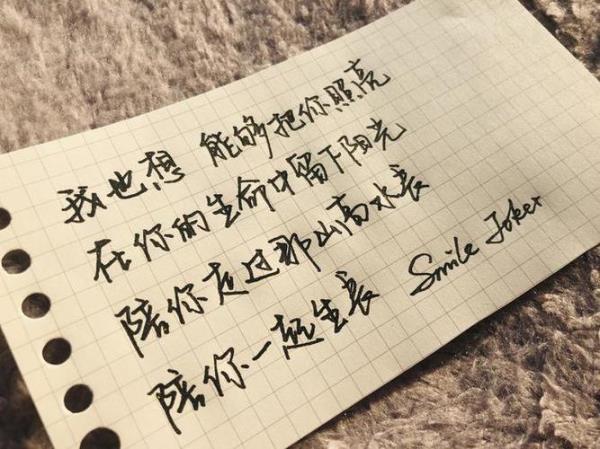 我也想 能够把你照亮
在你的生命中留下阳光
陪你走过那山高水长
陪你一起生长 Smile Joker